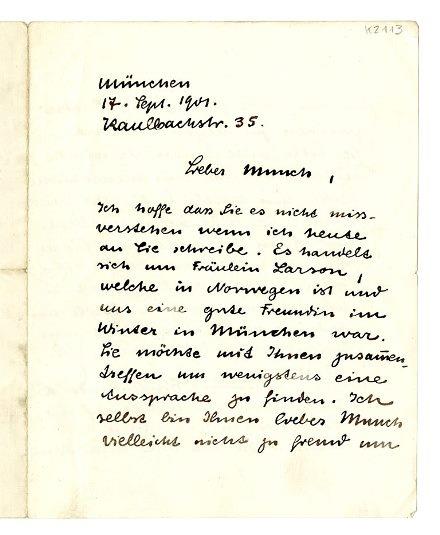 K2113
München
17. Sept. 1901.
Kaulbachstr. 35.
Lieber Munch,
Ich hoffe dass Sie es nicht miss-
verstehen wenn ich heute
an Sie schreibe. Es handelt
sich um Fräulein Larson,
welche in Norwegen ist und
uns eine gute Freundin im
Winter in München war.
Sie möchte mit Ihnen zusam̅en-
treffen um wenigstens eine
Aussprache zu finden. Ich
selbst bin Ihnen lieber Munch
vielleicht nicht zu fremd um